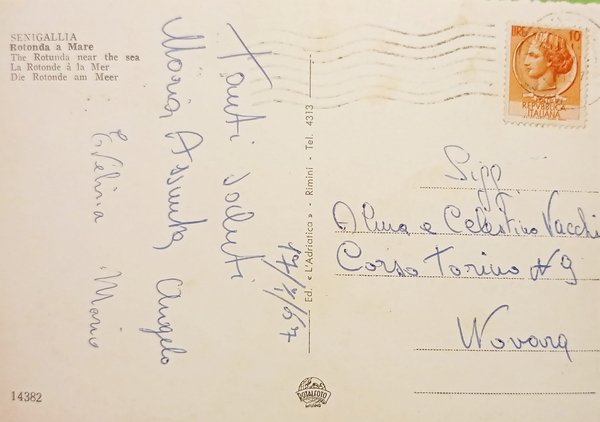 SENIGALLIA
Rotonda a Mare
The Rotunda near the sea
La Rotonde à la Mer
Die Rotonde am Meer
Tanti saluti
Maria Assunta, Angelo
Evelina Mario
Ed. «L'Adriatica» - Rimini - Tel. 4313
LIRE 10
REPUBBLICA
ITALIANA
Sigg
Alma e Celestino Vacchi
Corso Torino N 9
Novara
14382
ROTALFOTO
MILANO